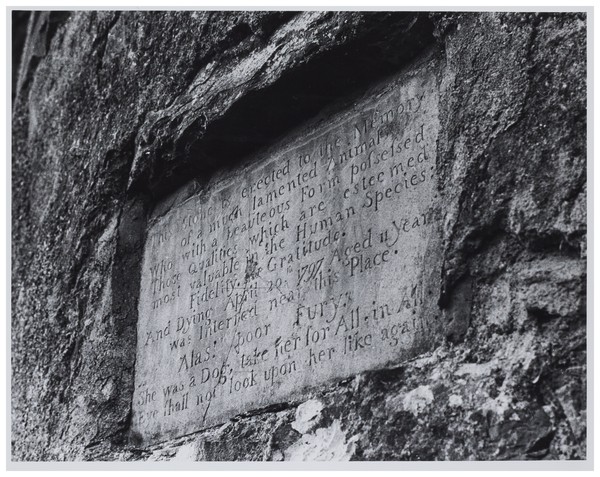 This Stone is erected to the Memory
of a much lamented Animal,
Who with a beauteous Form posseſsed
Those Qualities which are esteemed
most valuable in the Human Species:
Fidelity & Gratitude.
And Dying April 20. 1797 Aged 11 Years
was Interred near this Place.
Alas! poor Fury;
She was a Dog, take her for All, in All
Eye shall not look upon her like again